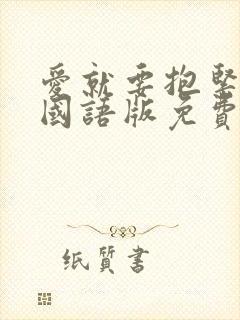 愛就要抱緊
國語版免費
纸質書